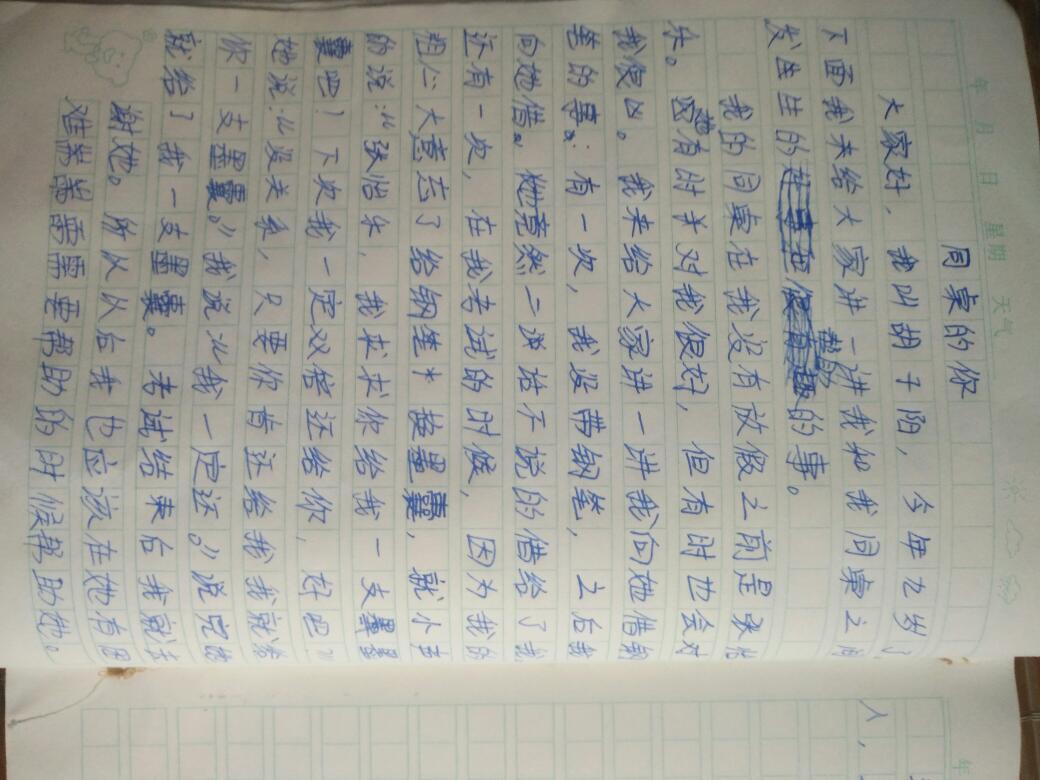 年 月 日 星期 天气
同桌的你
大家好，我叫胡子阳，今年九岁了，
下面我来给大家讲一讲我和我同桌之间
发生生的趣的事。
我的同桌在我没有放假之前是张怡
乐。有时并对我很好，但有时也会对
我很凶。我来给大家讲一讲我向她借钢
笔的事：有一次，我没带钢笔，之后我
向她借。她竟然二说话不说的借给了我
还有一次，在我考试的时候，因为我的
粗心大意忘了给钢笔换墨囊，就小声
的说：“张怡乐，我求求你给我一支墨
囊吧！下次我一定双倍还给你，好吧”
她说：“没关系，只要你肯还给我我就游
你一支墨囊。”我说：“我一定还。”说完她
就给了我一支墨囊。考试结束后我就去
谢她。所以以后我也应该在她有困
难需要帮助的时候帮助她。
人，
年